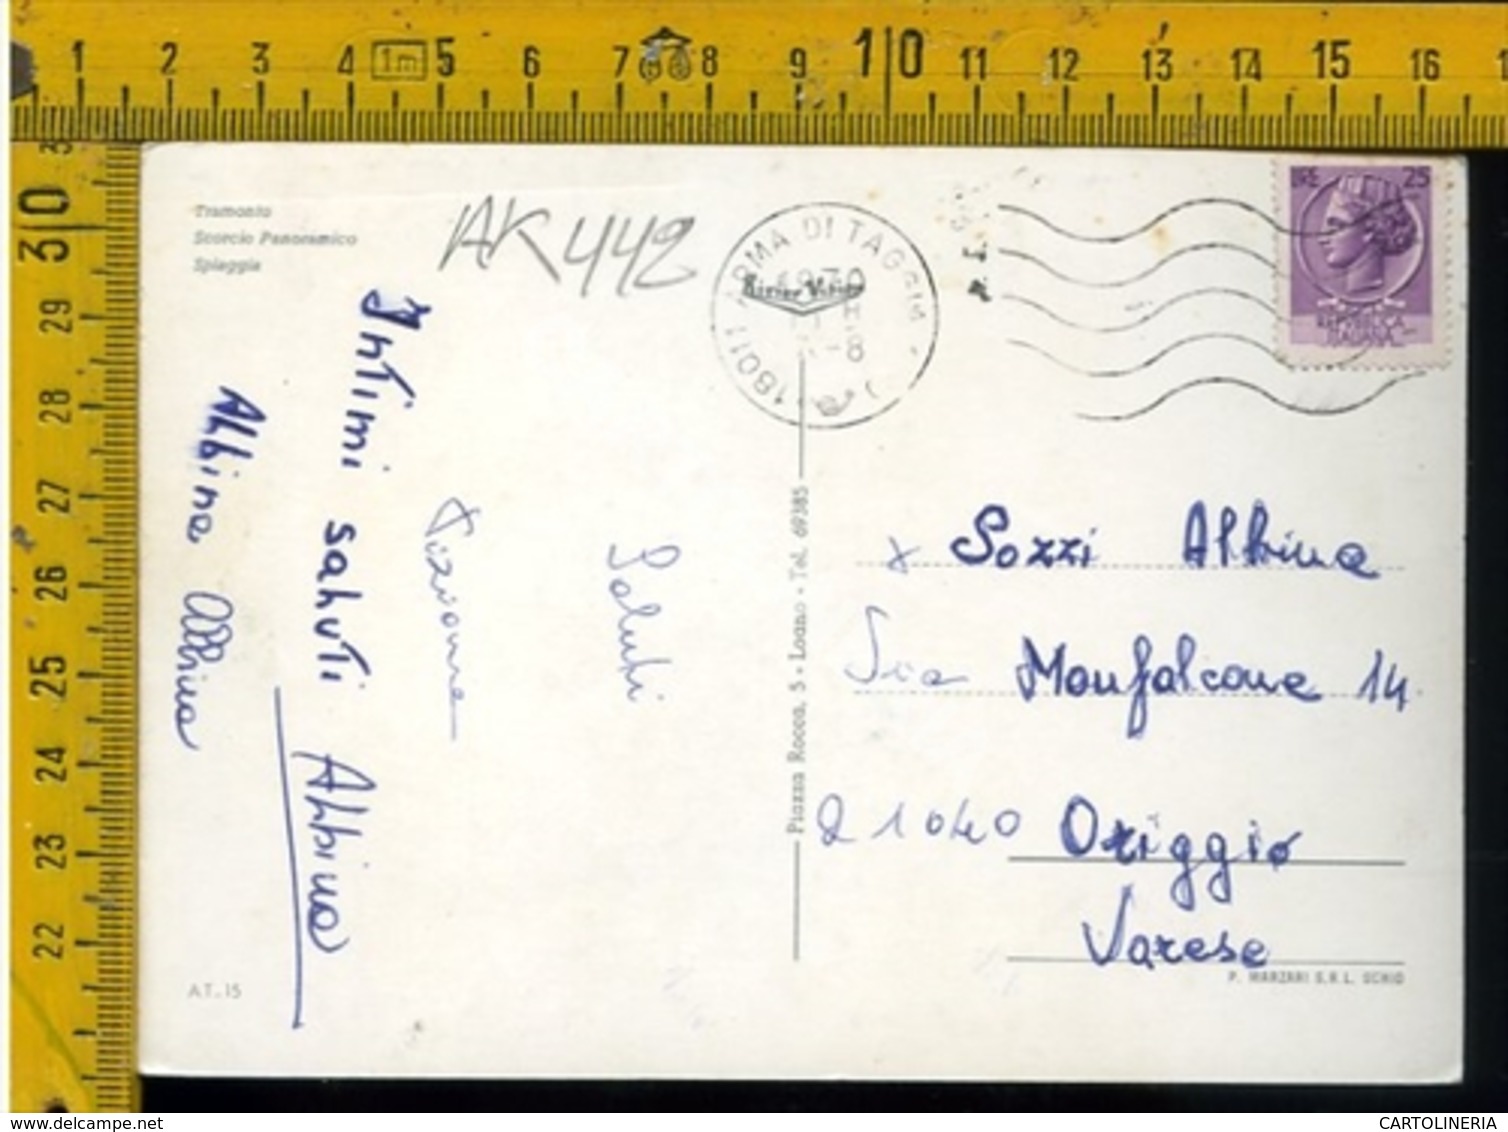 1 2 3 4 1m 5 6 7 8 9 10 11 12 13 14 15 16
30
29
28
27
26
25
24
23
22
Tramonto
Scorcio Panoramico
Spiaggia
AK 442
18011 ARMA DI TAGGIA
1970
-8
LIRE 25
REPUBBLICA
ITALIANA
Intimi saluti Albina
Albina Albina
Tiziana
Saluti
Piazza Rocca, 5 - Loano - Tel. 69385
x Sozzi Albina
Via Monfalcone 14
21040 Origgio
Varese
A.T. 15
P. MARZARI S.R.L. SCHIO
delcampe.net
CARTOLINERIA